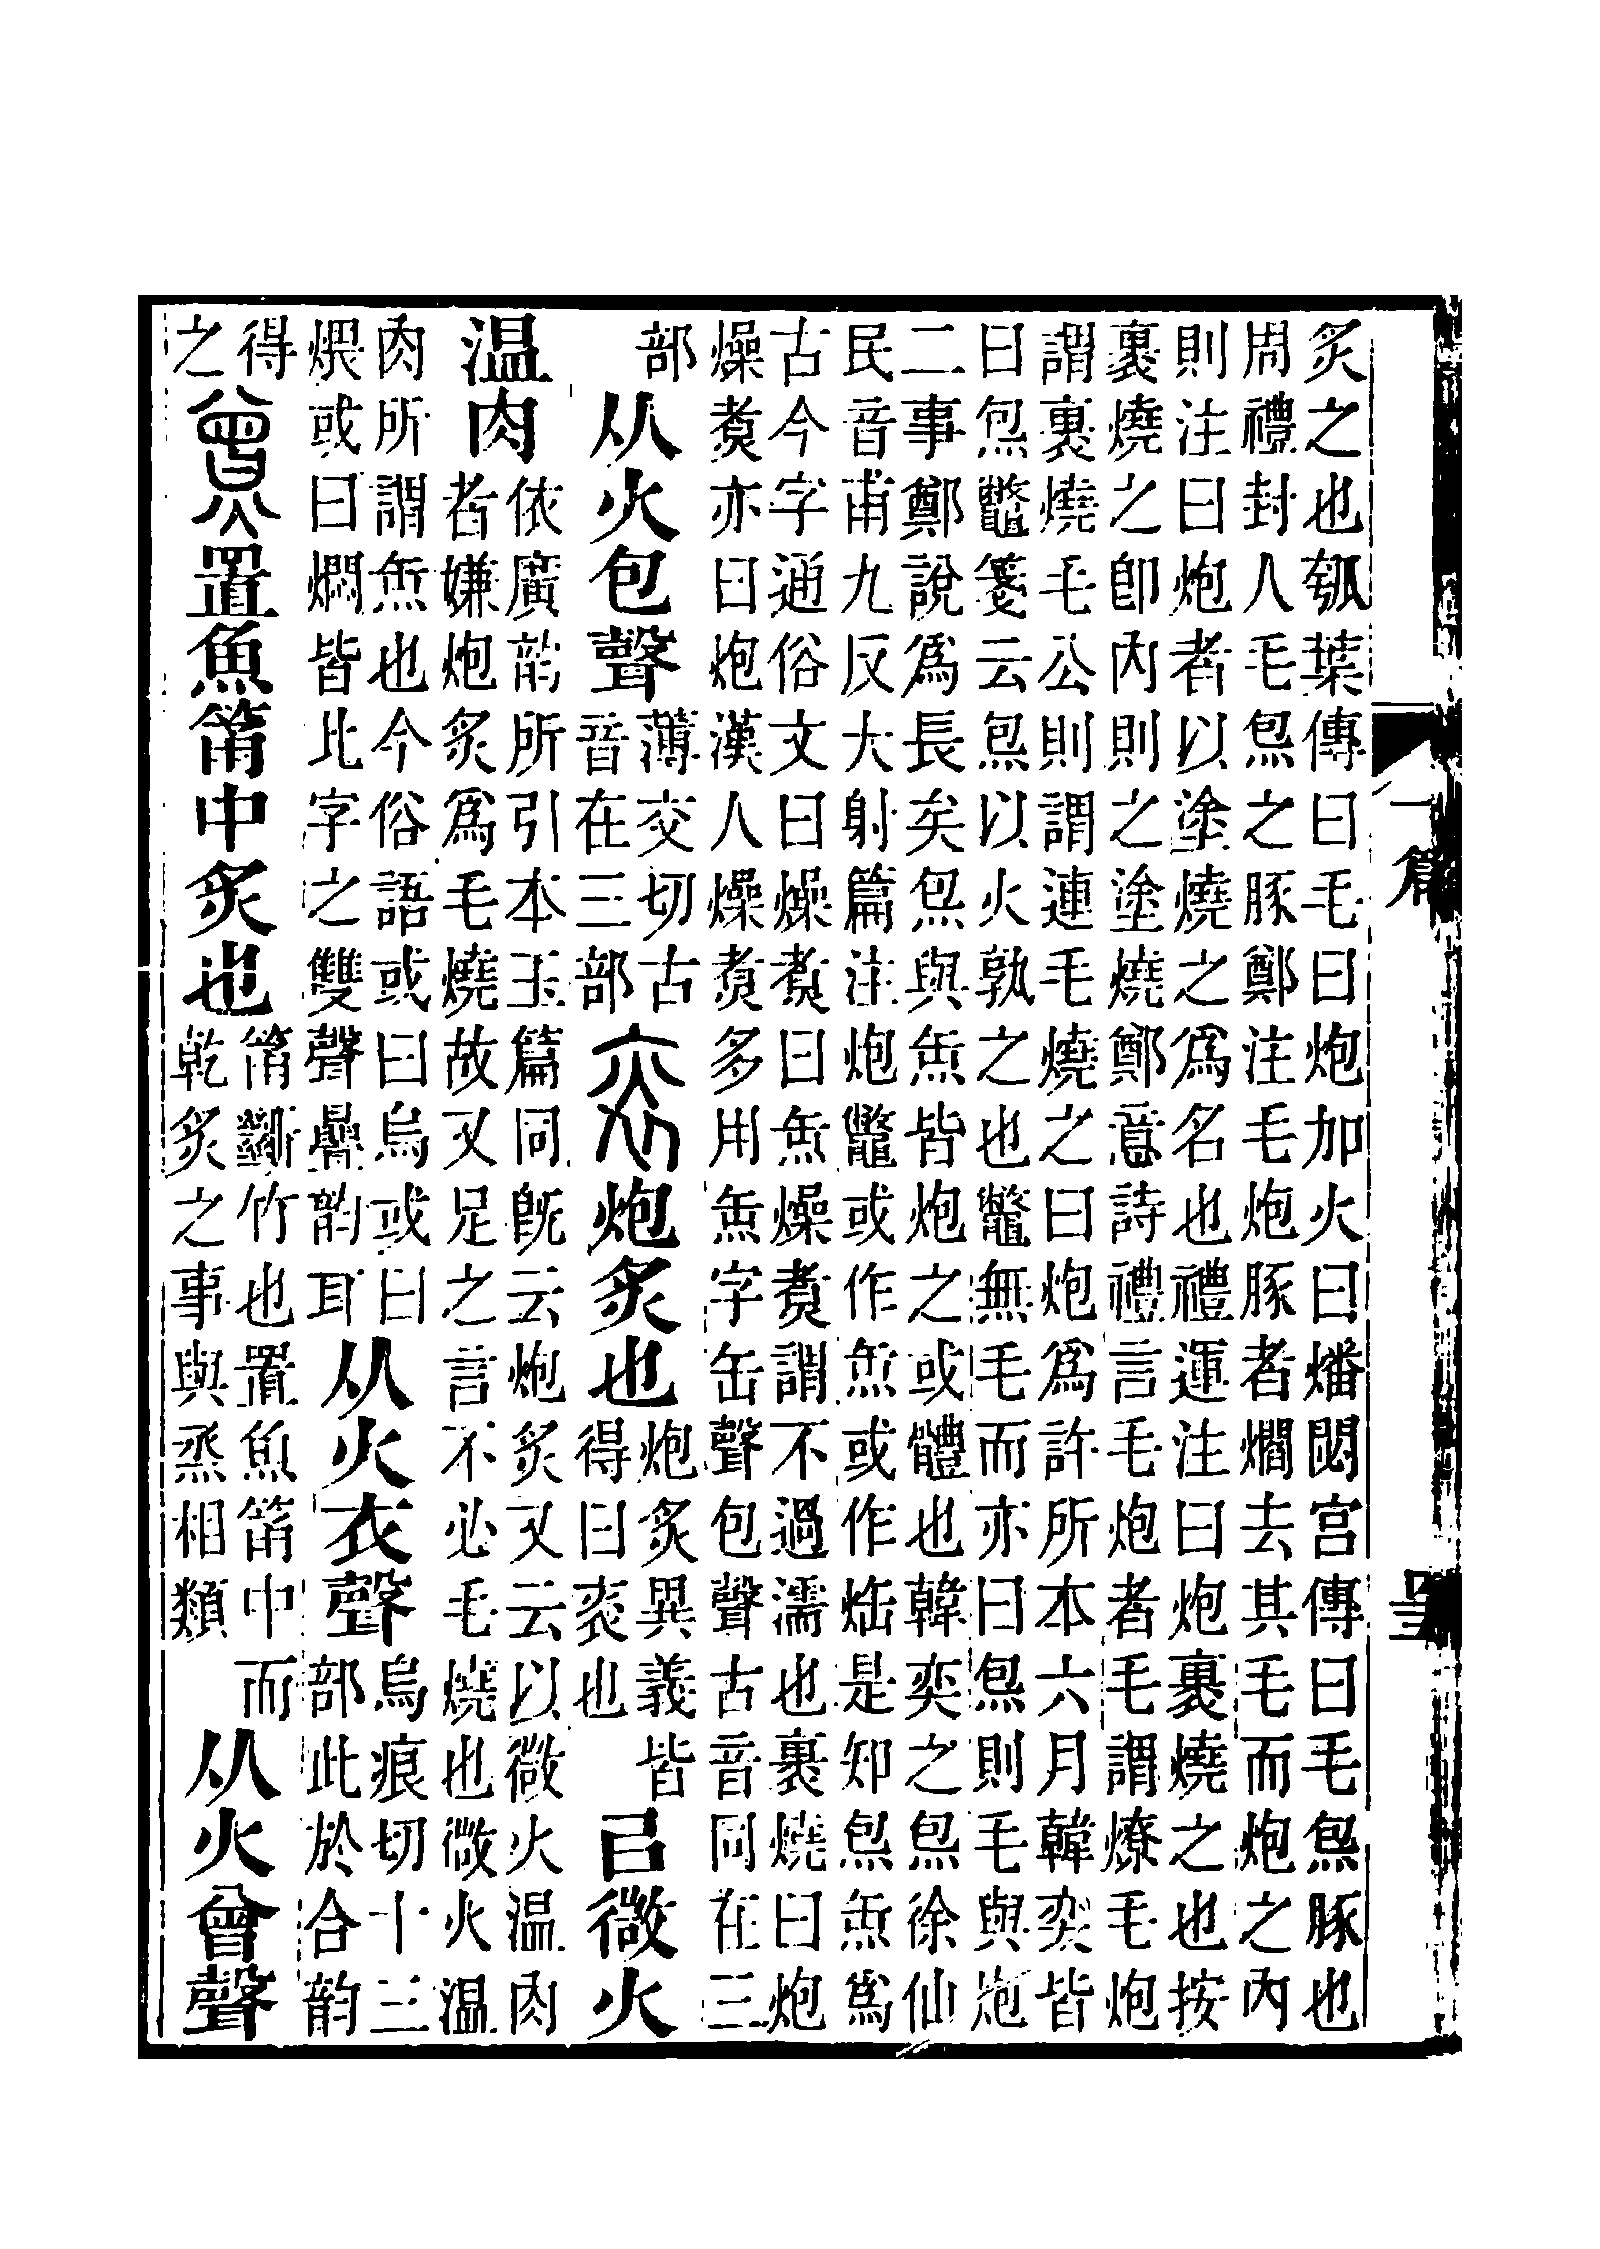 炙之也瓠葉傳曰毛曰炮加火曰燔閟宮傳曰毛炰豚也
周禮封人毛炰之豚鄭注毛炮豚者爓去其毛而炮之內
則注曰炮者以塗燒之爲名也禮運注曰炮裹燒之也按
裹燒之卽內則之塗燒鄭意詩禮言毛炮者毛謂燎毛炮
謂裹燒毛公則謂連毛燒之曰炮爲許所本六月韓奕皆
曰炰鼈箋云炰以火孰之也鼈無毛而亦曰炰則毛與炮
二事鄭說爲長矣炰與缹皆炮之或體也韓奕之炰徐仙
民音甫九反大射篇注炮鼈或作缹或作是知炰缹爲
古今字通俗文曰燥煑曰缹燥煑謂不過濡也裹燒曰炮
燥煑亦曰炮漢人燥煑多用缹字缶聲包聲古音同在三
部从火包聲薄交切古音在三部𤇯炮炙也炮炙異義皆得曰𤇯也㠯微火
温肉依廣韵所引本玉篇同旣云炮炙又云以微火温肉者嫌炮炙爲毛燒故又足之言不必毛燒也微火温
肉所謂缹也今俗語或曰烏或曰煨或曰燜皆此字之雙聲曡韵耳从火衣聲烏痕切十三部此於合韵
得之置魚筩中炙也筩斷竹也置魚筩中而乾炙之事與烝相類从火曾聲
篇